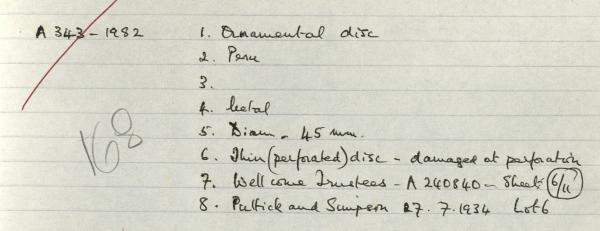 A 343-1982 1. Ornamental disc
2. Peru
3.
4. Metal
5. Diam - 45 mm.
6. Thin (perforated) disc - damaged at perforation
7. Wellcome Trustees - A 240840 - Sheet 6/11
8. Puttick and Simpson 27.7.1934 Lot 6
168